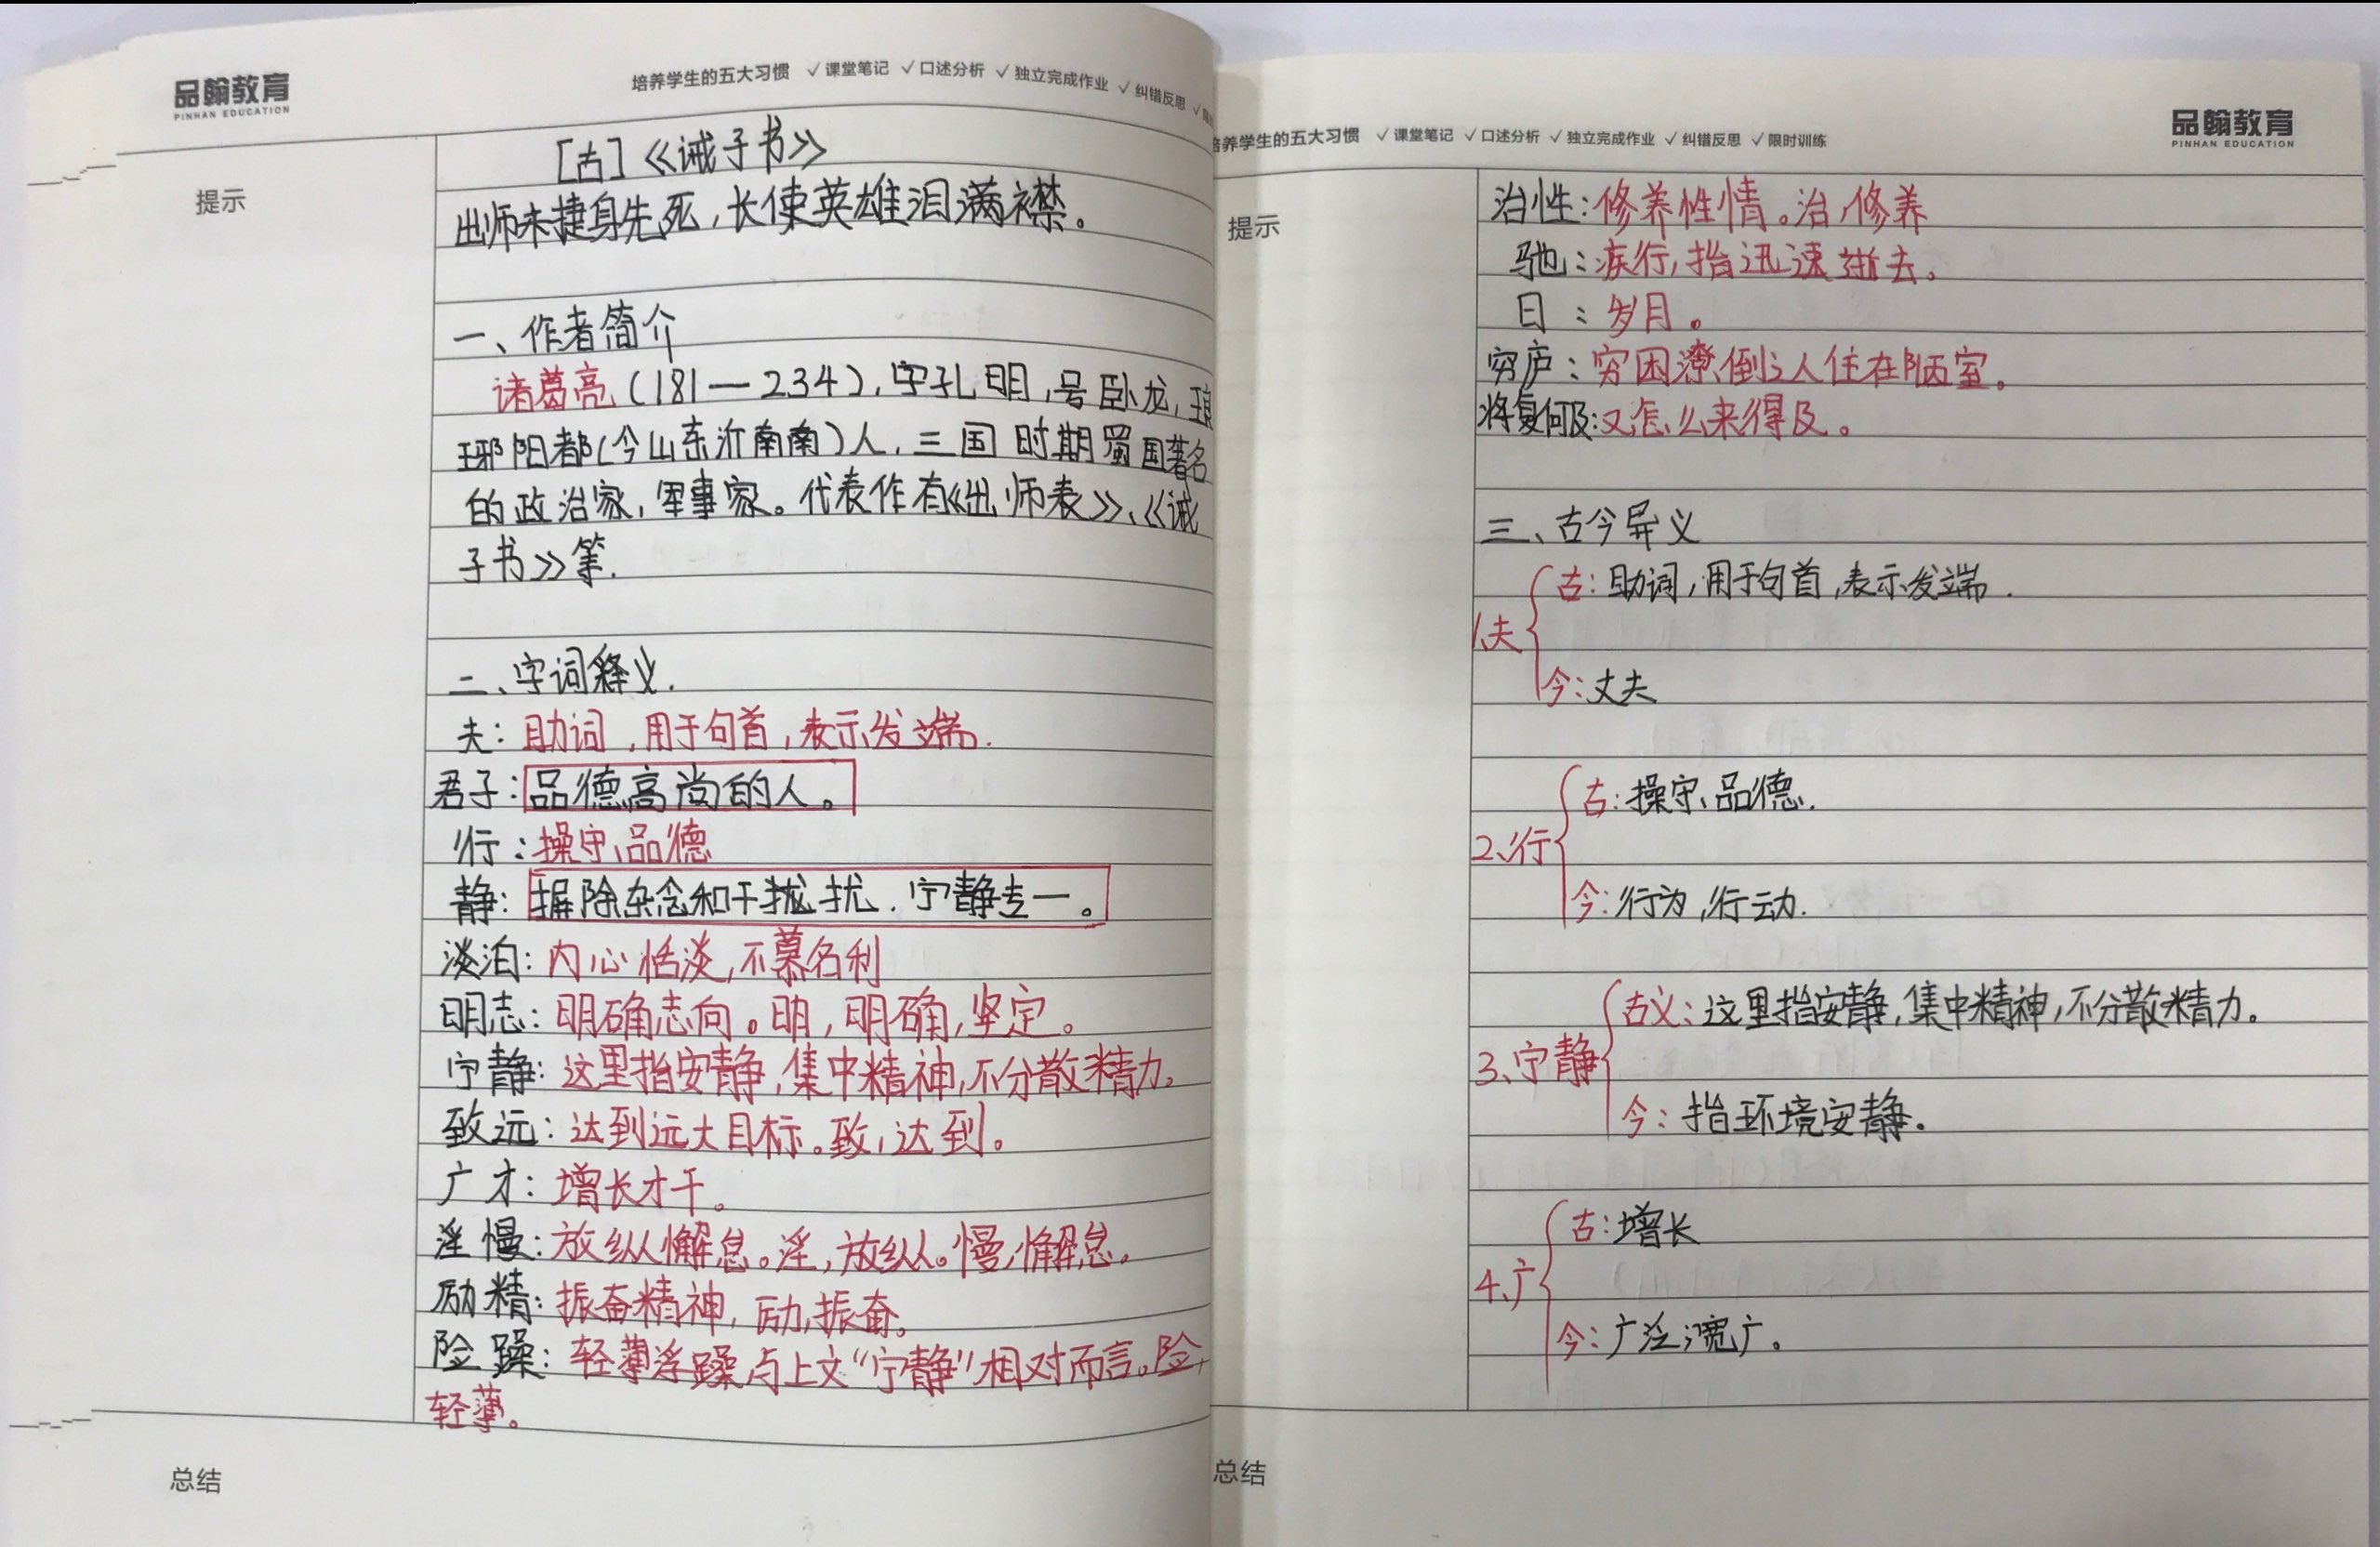 品翰教育
PINHAN EDUCATION
培养学生的五大习惯 √课堂笔记 √口述分析 √独立完成作业 √纠错反思 √
提示
[古]《诫子书》
出师未捷身先死,长使英雄泪满襟。
一、作者简介
诸葛亮(181—234),字孔明,号卧龙,琅
琊阳都(今山东沂南南)人,三国时期蜀国著名
的政治家,军事家。代表作有《出师表》、《诫
子书》等.
二、字词释义.
夫:助词,用于句首,表示发端.
君子:品德高尚的人。
行:操守、品德
静:摒除杂念和干扰,宁静专一。
淡泊:内心恬淡,不慕名利
明志:明确志向。明,明确,坚定。
宁静:这里指安静,集中精神,不分散精力。
致远:达到远大目标。致,达到。
广才:增长才干。
淫慢:放纵懈怠。淫,放纵。慢,懈怠。
励精:振奋精神,励,振奋。
险躁:轻薄浮躁,与上文“宁静”相对而言。险,
轻薄。
总结
培养学生的五大习惯 √课堂笔记 √口述分析 √独立完成作业 √纠错反思 √限时训练
品翰教育
PINHAN EDUCATION
提示
治性:修养性情。治,修养
驰:疾行,指迅速逝去。
日:岁月。
穷庐:穷困潦倒之人住在陋室。
将复何及:又怎么来得及。
三、古今异义
古:助词,用于句首,表示发端.
1、夫
今:丈夫
古:操守、品德.
2、行
今:行为,行动.
古义:这里指安静,集中精神,不分散精力。
3、宁静
今:指环境安静.
古:增长
4、广
今:广泛,宽广。
总结